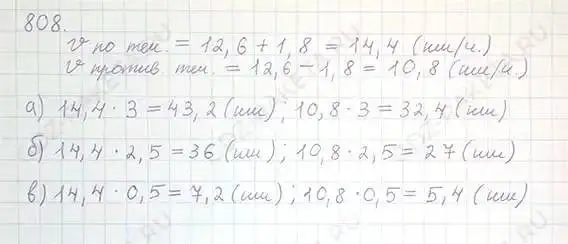 808.
v по теч. = 12,6 + 1,8 = 14,4 (км/ч.)
v против теч. = 12,6 - 1,8 = 10,8 (км/ч.)
а) 14,4 · 3 = 43,2 (км); 10,8 · 3 = 32,4 (км)
б) 14,4 · 2,5 = 36 (км); 10,8 · 2,5 = 27 (км)
в) 14,4 · 0,5 = 7,2 (км); 10,8 · 0,5 = 5,4 (км)